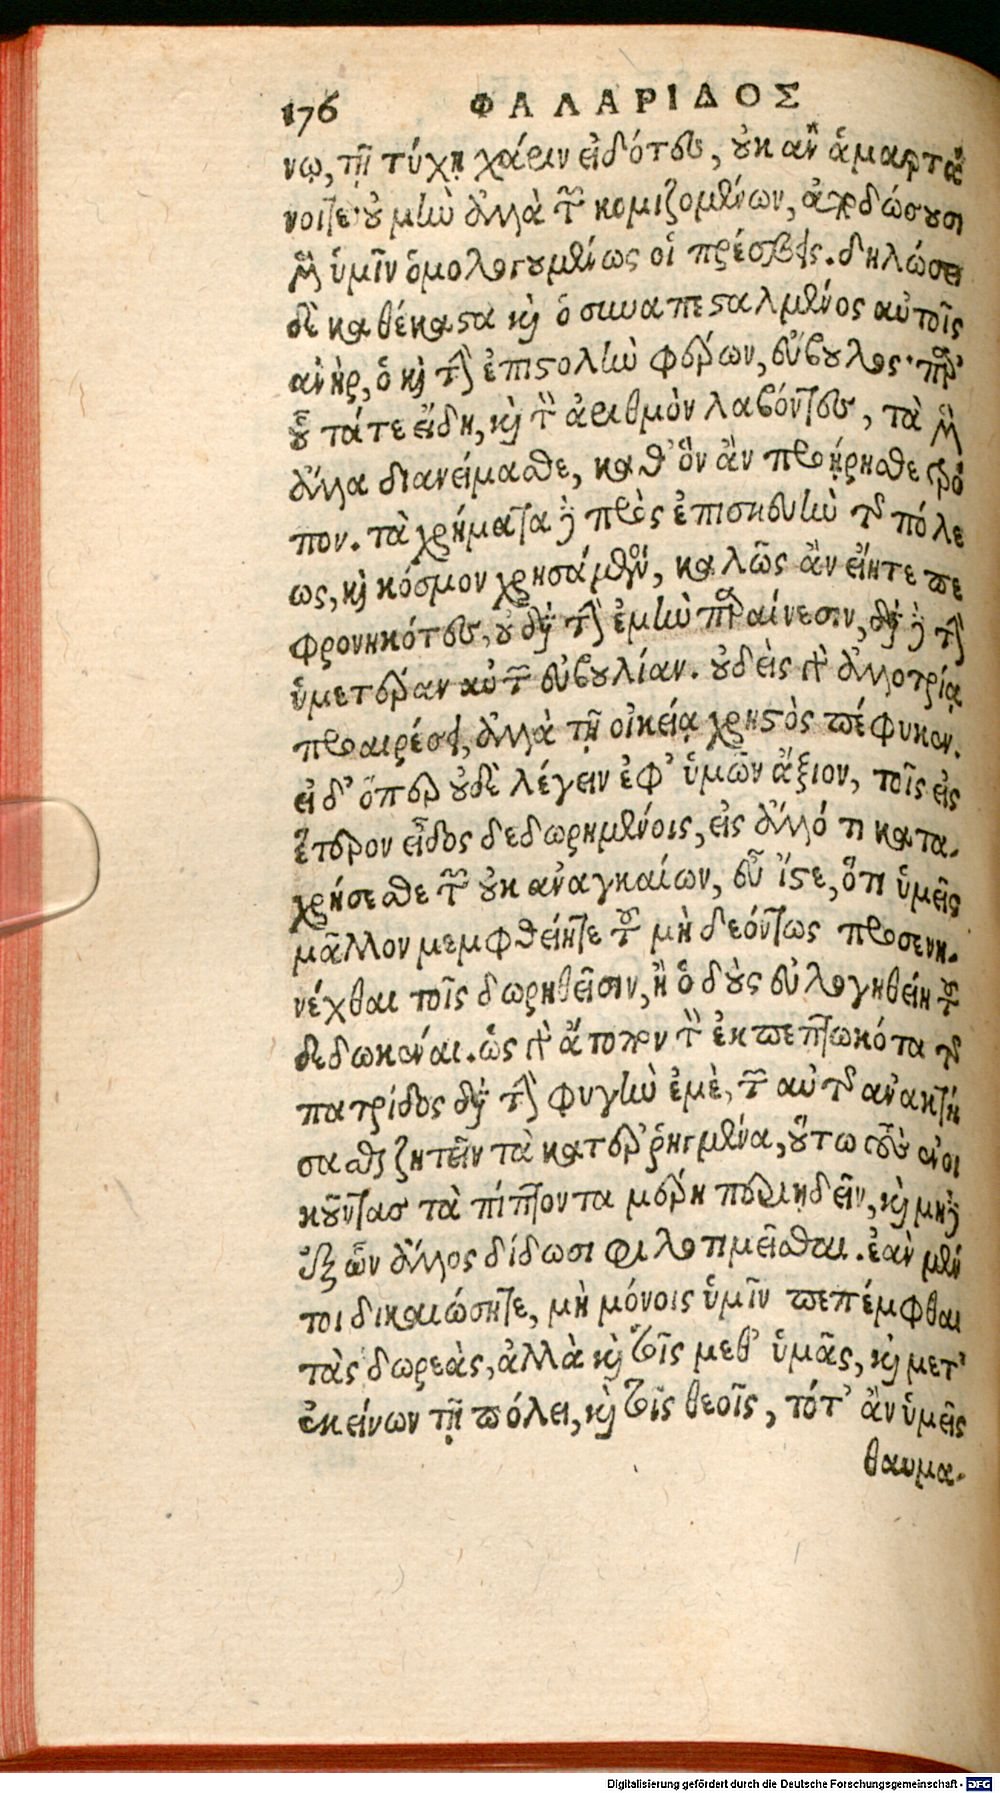 176 ΦΑΛΑΡΙΔΟΣ
νῳ, τῇ τύχῃ χάριν εἰδότες, οὐκ ἂν ἁμαρτά
νοιτε· οὐ μὴν ἀλλὰ τῶν κομιζομένων, ἀποδώσουσι
μὲν ὑμῖν ὁμολογουμένως οἱ πρέσβεις. δηλώσει
δὲ καθέκαστα καὶ ὁ συναπεσταλμένος αὐτοῖς
ἀνὴρ, ὁ καὶ τὴν ἐπιστολὴν φέρων, εὔβουλος· παρ'
οὗ τά τε εἴδη, καὶ τὸν ἀριθμὸν λαβόντες, τὰ μὲν
ἄλλα διανείμασθε, καθ' ὃν ἂν προῄρησθε τρό
πον. τὰ χρήματα δὲ πρὸς ἐπισκευὴν τῆς πόλε
ως, καὶ κόσμον χρησάμενοι, καλῶς ἂν εἴητε πε
φρονηκότες, οὐ διὰ τὴν ἐμὴν παραίνεσιν, διὰ δὲ τὴν
ὑμετέραν αὐτῶν εὐβουλίαν. οὐδεὶς γὰρ ἀλλοτρίᾳ
προαιρέσει, ἀλλὰ τῇ οἰκείᾳ χρηστὸς πέφυκεν.
εἰ δ' ὅπερ οὐδὲ λέγειν ἐφ' ὑμῶν ἄξιον, τοῖς εἰς
ἕτερον εἶδος δεδωρημένοις, εἰς ἄλλό τι κατα-
χρήσεσθε τῶν οὐκ ἀναγκαίων, εὖ ἴστε, ὅτι ὑμεῖς
μᾶλλον μεμφθείητε τοῦ μὴ δεόντως προσενη-
νέχθαι τοῖς δωρηθεῖσιν, ἢ ὁ δοὺς εὐλογηθείη τοῦ
δεδωκέναι. ὡς γὰρ ἄτοπον τὸν ἐκπεπτωκότα τῆς
πατρίδος διὰ τὴν φυγὴν ἐμὲ, τῶν αὐτῆς ἀνακτή
σασθαι ζητεῖν τὰ κατερρηγμένα, οὕτω τοὺς ἐνοι
κοῦντας τὰ πίπτοντα μέρη περιιδεῖν, καὶ μηδὲ
ἐξ ὧν ἄλλος δίδωσι φιλοτιμεῖσθαι. ἐὰν μέν
τοι δικαιώσητε, μὴ μόνοις ὑμῖν πεπέμφθαι
τὰς δωρεὰς, ἀλλὰ καὶ τοῖς μεθ' ὑμᾶς, καὶ μετ'
ἐκείνων τῇ πόλει, καὶ τοῖς θεοῖς, τότ' ἂν ὑμεῖς
θαυμα-
Digitalisierung gefördert durch die Deutsche Forschungsgemeinschaft - DFG